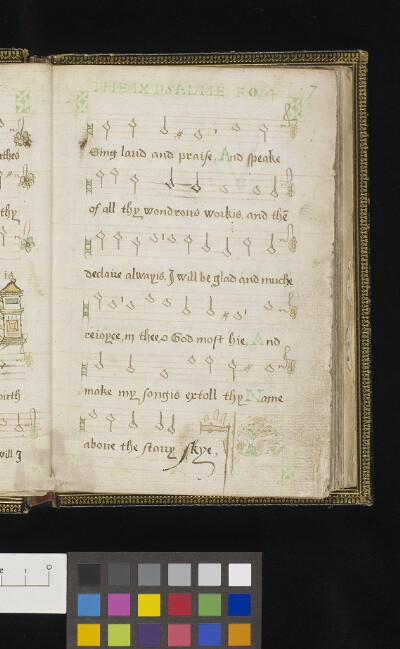 THE IX PSALME. FO. 4
7
Sing laud and praise, And speake
of all thy wondrous workis, and thē
declaire alwayis, I will be glad and muche
reioyce, in thee, o God most hie, And
make my songis extoll thy Name
aboue the starry skye.
thes
thy
is
birth
will I
0
1
2